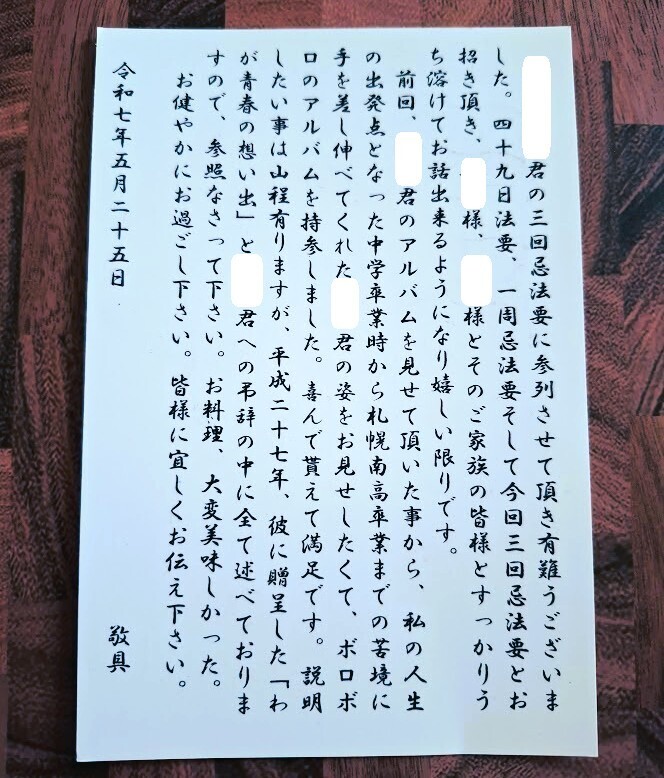 君の三回忌法要に参列させて頂き有難うございま
した。四十九日法要、一周忌法要そして今回三回忌法要とお
招き頂き、様、様とそのご家族の皆様とすっかりう
ち溶けてお話出来るようになり嬉しい限りです。
前回、君のアルバムを見せて頂いた事から、私の人生
の出発点となった中学卒業時から札幌南高卒業までの苦境に
手を差し伸べてくれた君の姿をお見せしたくて、ボロボ
ロのアルバムを持参しました。喜んで貰えて満足です。説明
したい事は山程有りますが、平成二十七年、彼に贈呈した「わ
が青春の想い出」と君への弔辞の中に全て述べておりま
すので、参照なさって下さい。お料理、大変美味しかった。
お健やかにお過ごし下さい。皆様に宜しくお伝え下さい。
敬具
令和七年五月二十五日